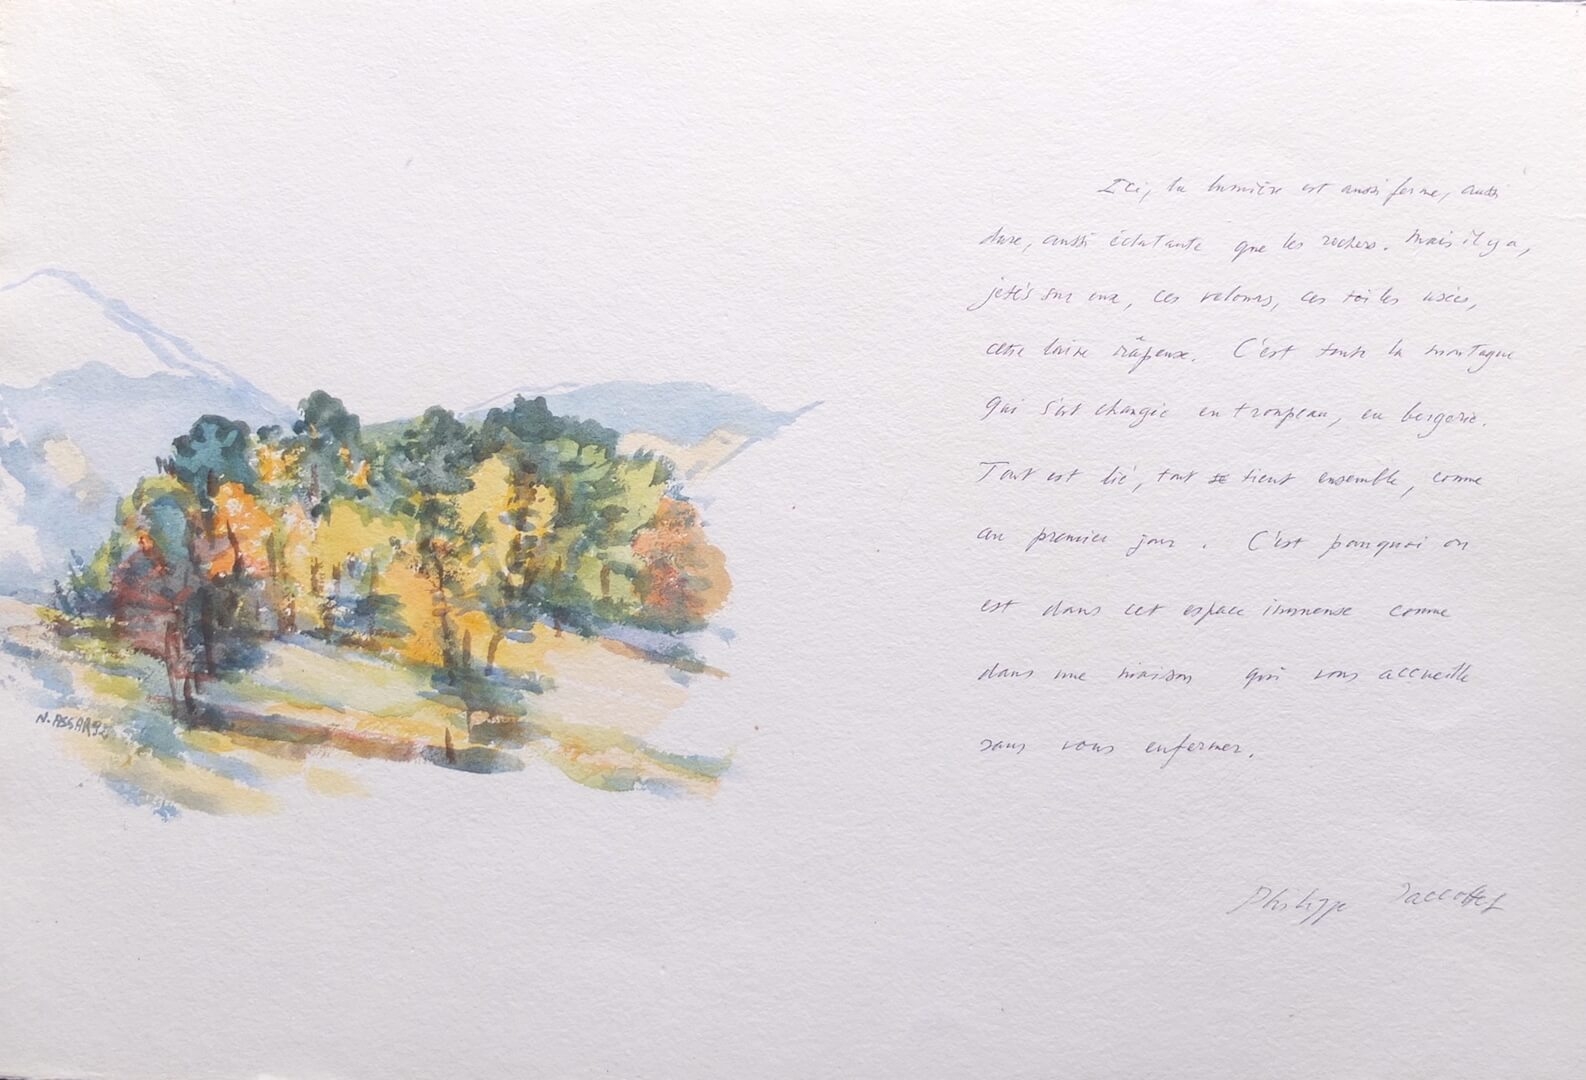 Ici, la lumière est aussi ferme, aussi
dure, aussi éclatante que les rochers. Mais il y a,
jetés sur eux, ces velours, ces toiles usées,
cette laine râpeuse. C'est toute la montagne
qui s'est changée en troupeau, en bergerie.
Tout est lié, tout se tient ensemble, comme
au premier jour. C'est pourquoi on
est dans cet espace immense comme
dans une maison qui vous accueille
sans vous enfermer.
Philippe Jaccottet
N. ASSAR